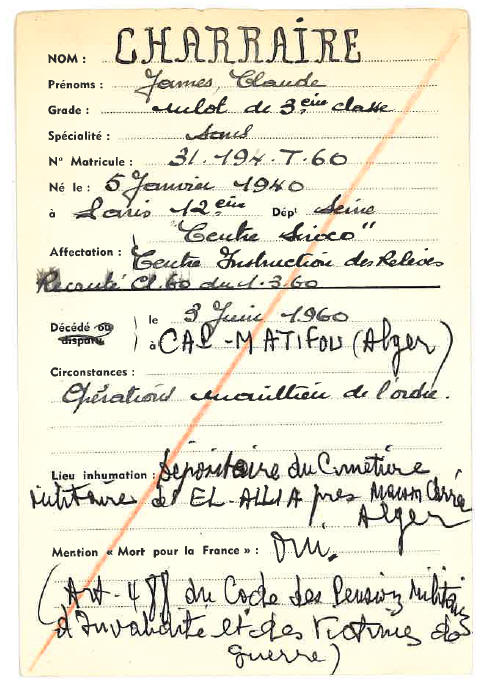 NOM : CHARRAIRE
Prénoms : James, Claude
Grade : mlot de 3ème classe
Spécialité : sans
N° Matricule : 31.194.T.60
Né le : 5 Janvier 1940
à Paris 12ème Dépt Seine
"Centre Siroco"
Affectation : Centre Instruction des Relèves
Recruté Cl 60 du 1.3.60
Décédé ou disparu le 3 Juin 1960
à CAP-MATIFOU (Alger)
Circonstances :
Opérations maintien de l'ordre.
Lieu inhumation : Dépositoire du Cimetière
Militaire d' EL-ALIA près Maison Carrée
Alger
Mention « Mort pour la France » : Oui.
(Art-488 du Code des Pensions Militaires
d'Invalidité et des Victimes de
guerre)